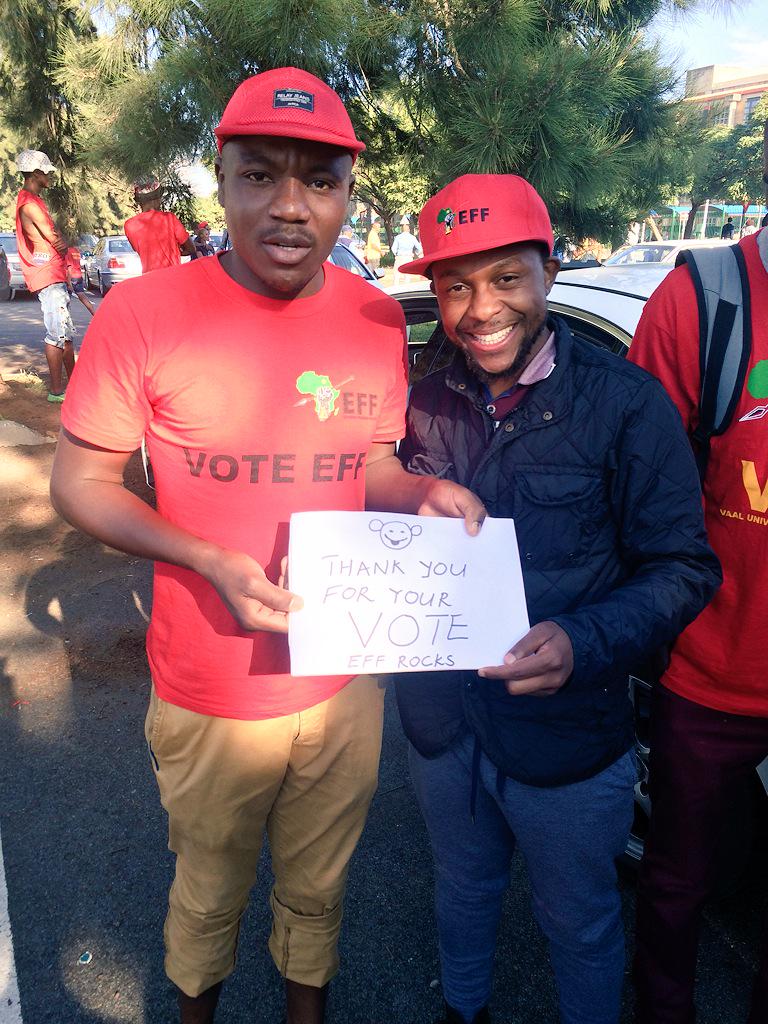 RELAY JEANS
EFF
EFF
VOTE EFF
THANK YOU
FOR YOUR
VOTE
EFF ROCKS
V
VAAL UNIV